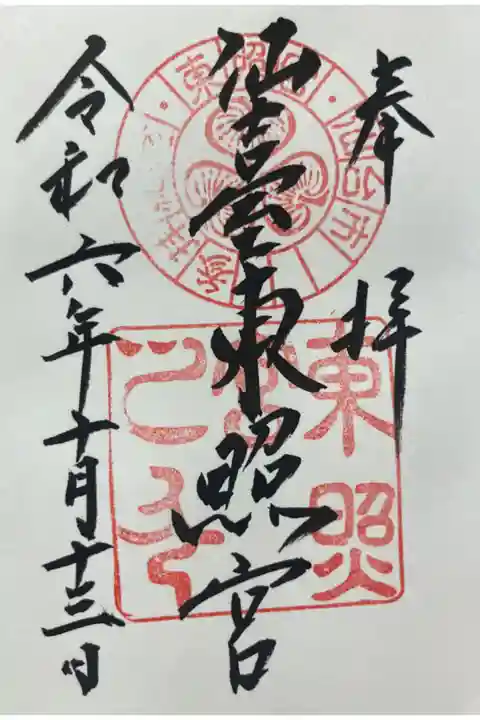 奉拝
仙臺東照宮
令和六年十月十三日
東照